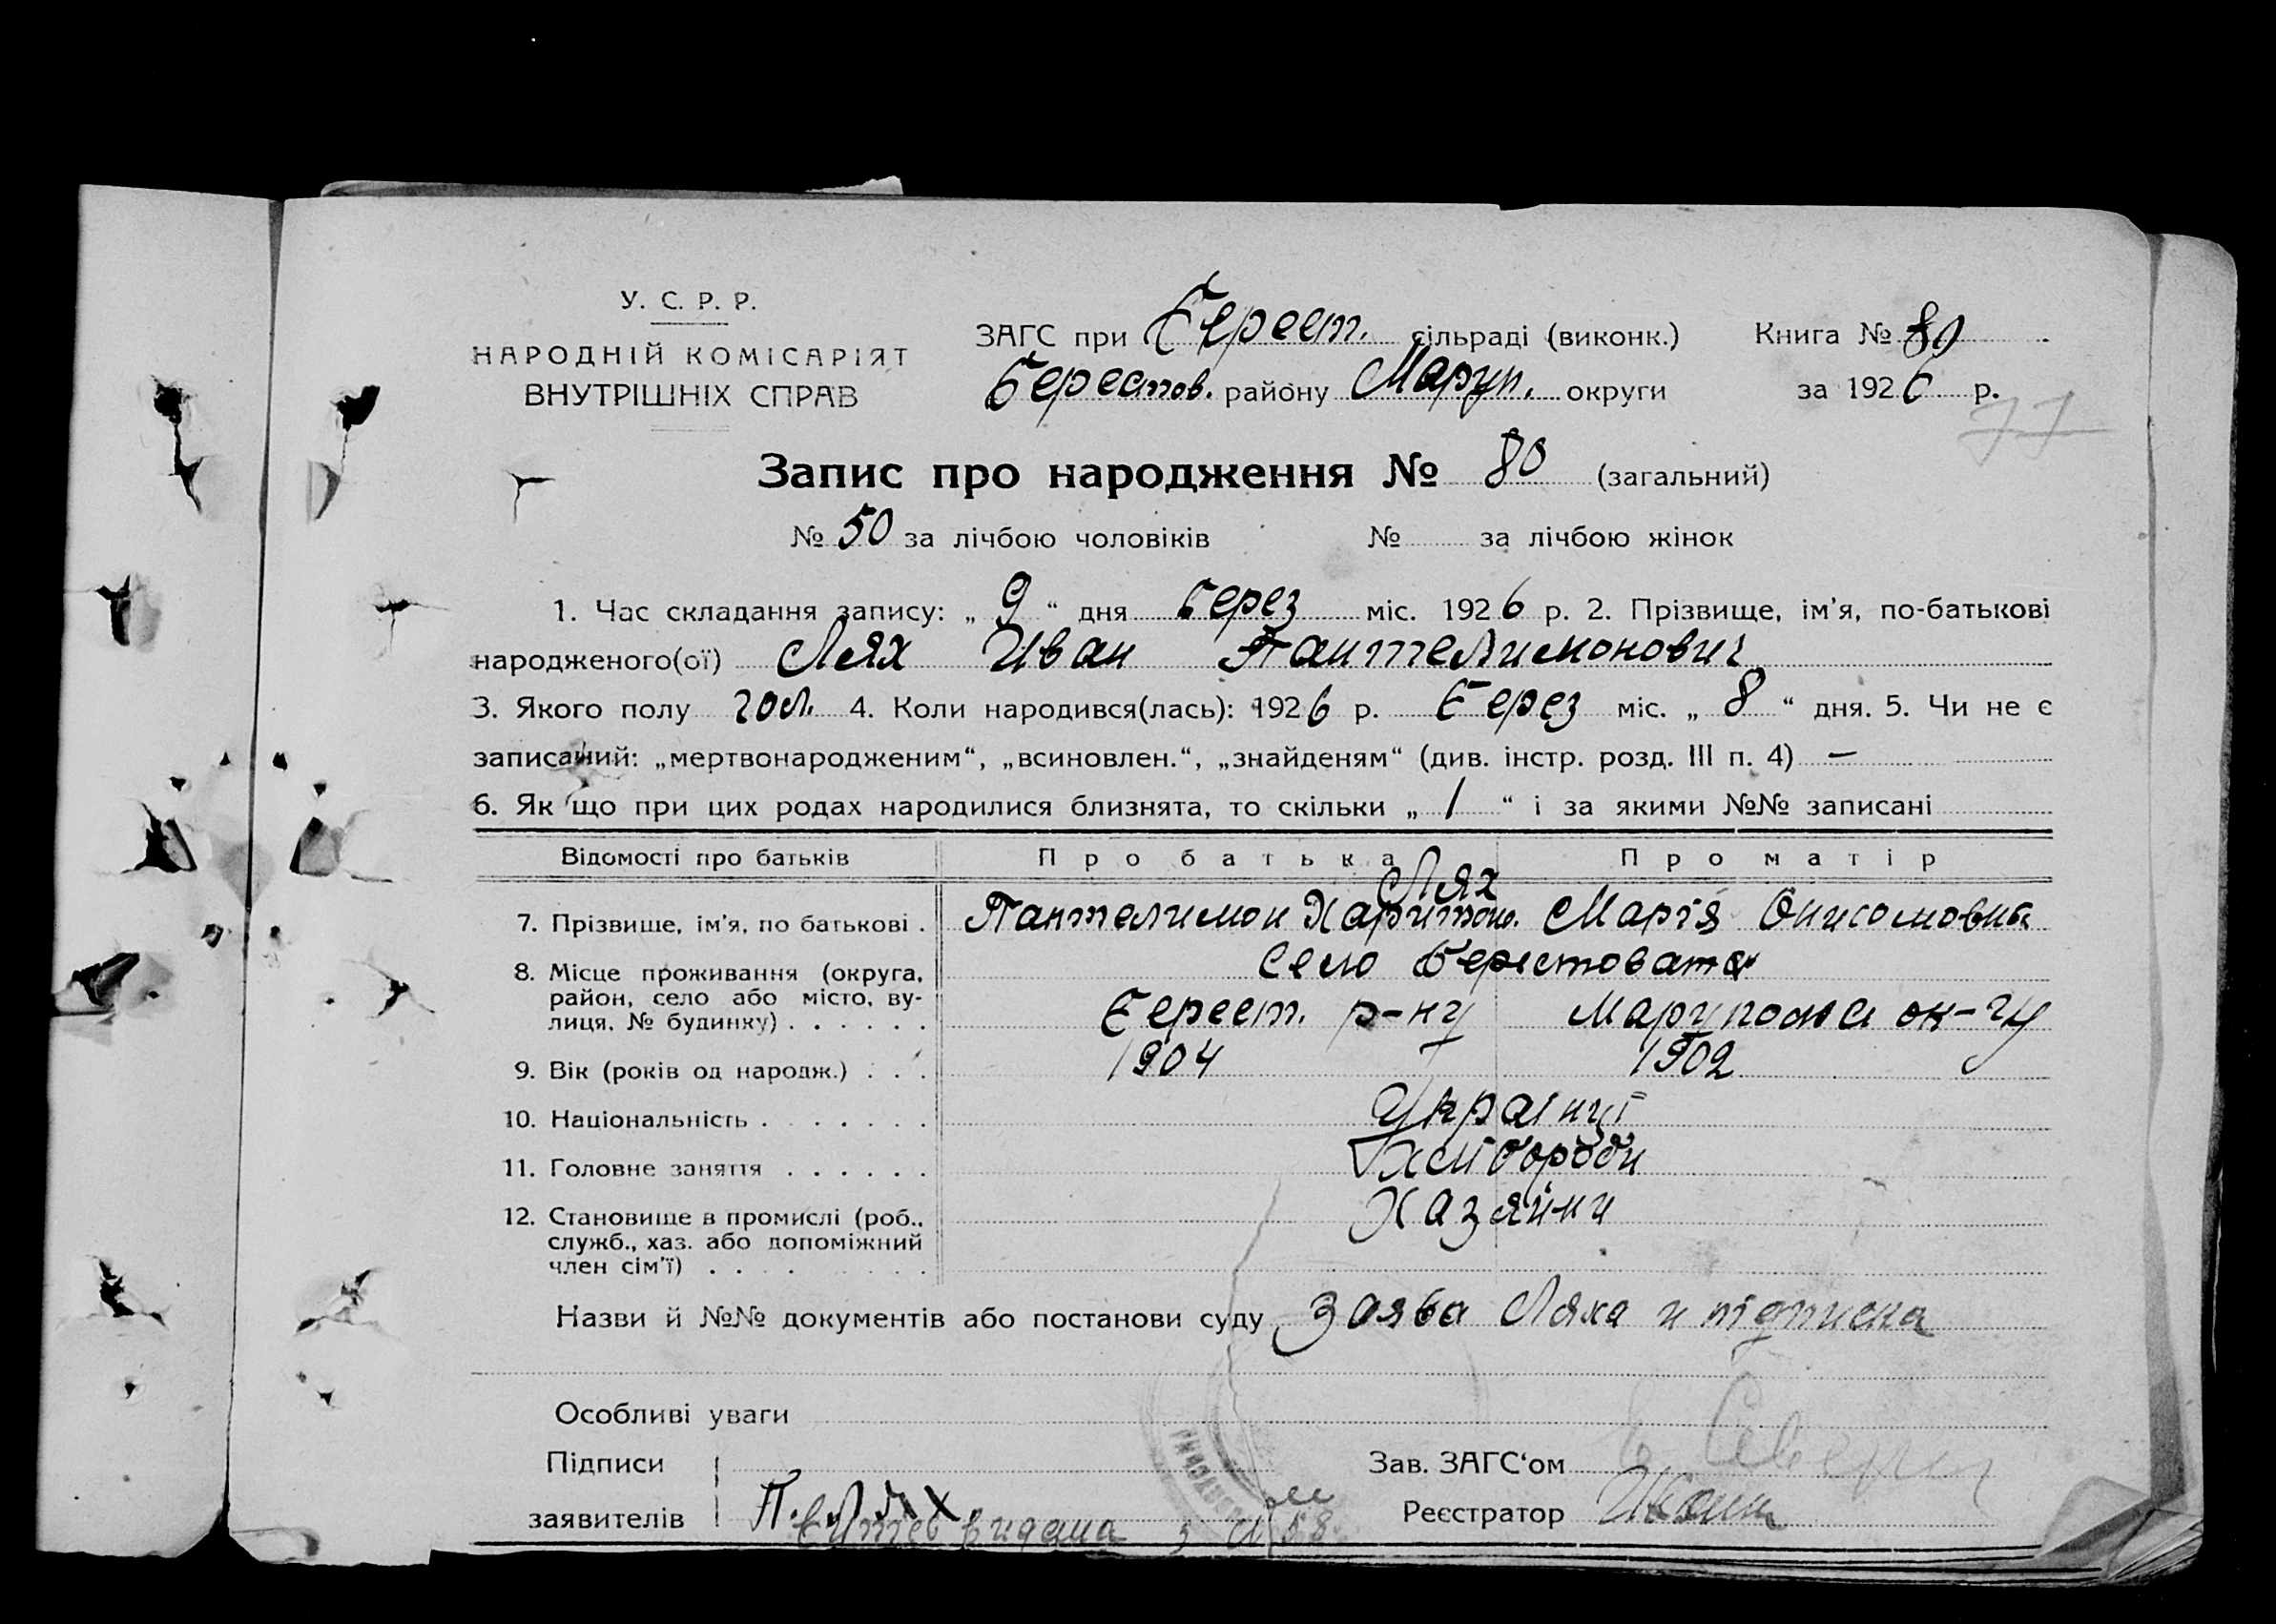 У. С. Р. Р.
НАРОДНІЙ КОМІСАРІЯТ
ВНУТРІШНІХ СПРАВ
ЗАГС при Берест. сільраді (виконк.) Книга № 80
Берестов. району Маруп. округи за 1926 р.
77
Запис про народження № 80 (загальний)
№ 50 за лічбою чоловіків № за лічбою жінок
1. Час складання запису: „ 9 “ дня Берез міс. 1926 р. 2. Прізвище, ім'я, по-батькові
народженого(ої) Лях Иван Пантелимонович
3. Якого полу чол. 4. Коли народився(лась): 1926 р. Берез міс. „ 8 “ дня. 5. Чи не є
записаний: „мертвонародженим“, „всиновлен.“, „знайденям“ (див. інстр. розд. III п. 4) —
6. Як що при цих родах народилися близнята, то скільки „ 1 “ і за якими №№ записані
Відомості про батьків Про батька Про матір
Лях
7. Прізвище, ім'я, по батькові . Пантелимон Харитон. Марія Онисомовна
8. Місце проживання (округа, Село Берестовата
район, село або місто, ву-
лиця, № будинку) . . . . . . Берест. р-ну ок-ги
9. Вік (років од народж.) . . . 1904 1902
10. Національність . . . . . . . Українці
11. Головне заняття . . . . . . Хлібороби
12. Становище в промислі (роб., Хазяїни
служб., хаз. або допоміжний
член сім'ї) . . . . . . . . .
Назви й №№ документів або постанови суду Заява Ляха и підписка
Особливі уваги
Підписи Зав. ЗАГС'ом
заявителів П. Лях Реєстратор
видана